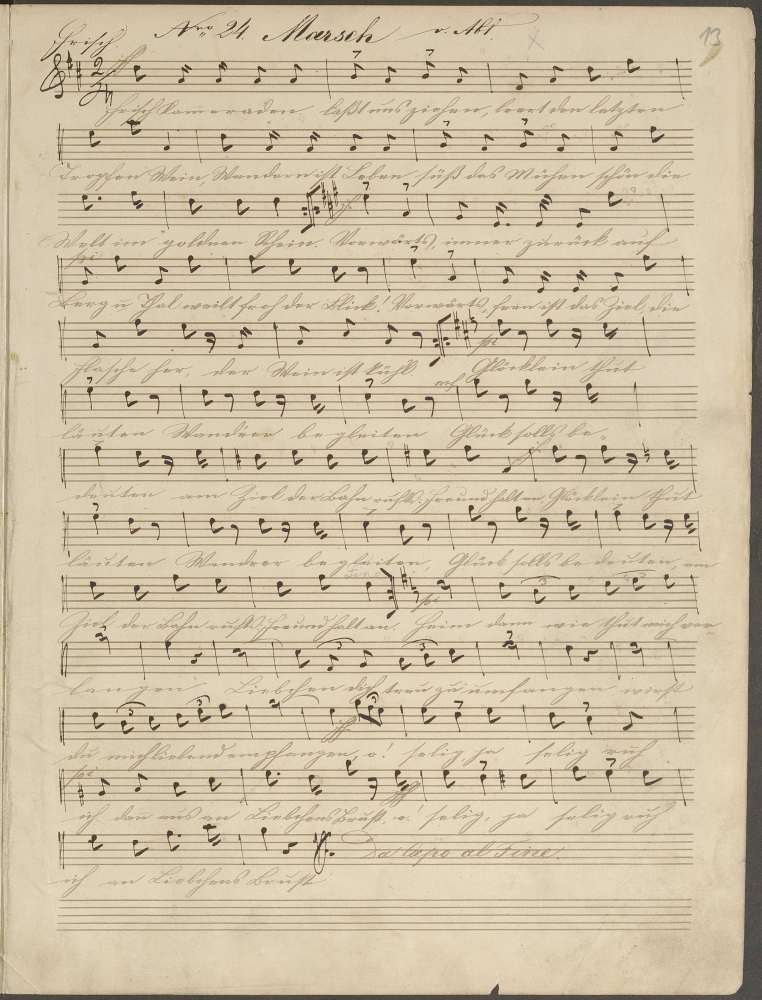 Frisch Nro 24. Marsch v. Abt. 13
Frisch Kameraden laßt uns ziehen, leert den letzten
Tropfen Wein, Wandern ist Leben süß das Mühen schön die
Welt im goldnen Rhein. Vorwärts, immer zurück auf
Berg u Thal weilt froh der Blick! Vorwärts, fern ist das Ziel, die
Flasche her, der Wein ist kühl. Glöcklein thut
läuten Wandrer begleiten Glück solls be-
deuten am Ziel der Bahn ruft: Freund halt an, Glöcklein thut
läuten Wandrer begleiten, Glück solls bedeuten, am
Ziel der Bahn rufts: Freund halt an. Heim dann wie thut mich ver-
langen Liebchen dich treu zu umfangen wirst
du mich liebend empfangen, o! selig ja selig ruh
ich dan aus an Liebchens Brust, o! selig, ja selig ruh
Da Capo al Fine.
ich an Liebchens Brust